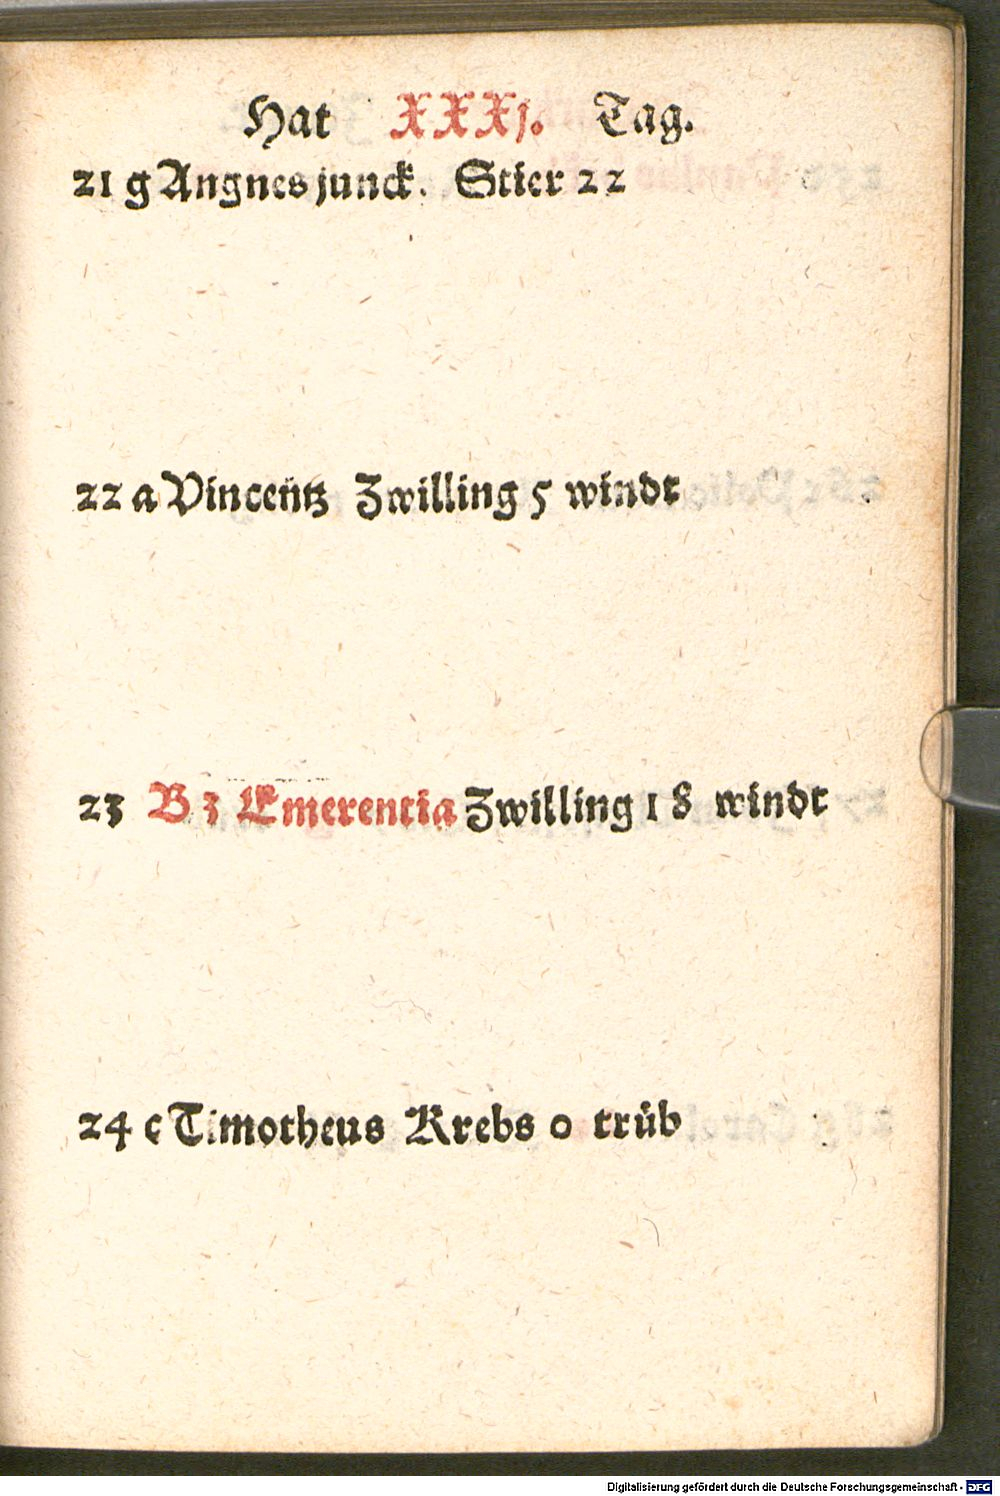 Hat XXXj. Tag.
21 g Angnes junck. Stier 22
22 a Vinceñtz Zwilling 5 windt
23 B 3 Emerentia Zwilling 18 windt
24 c Timotheus Krebs 0 trüb
Digitalisierung gefördert durch die Deutsche Forschungsgemeinschaft - DFG